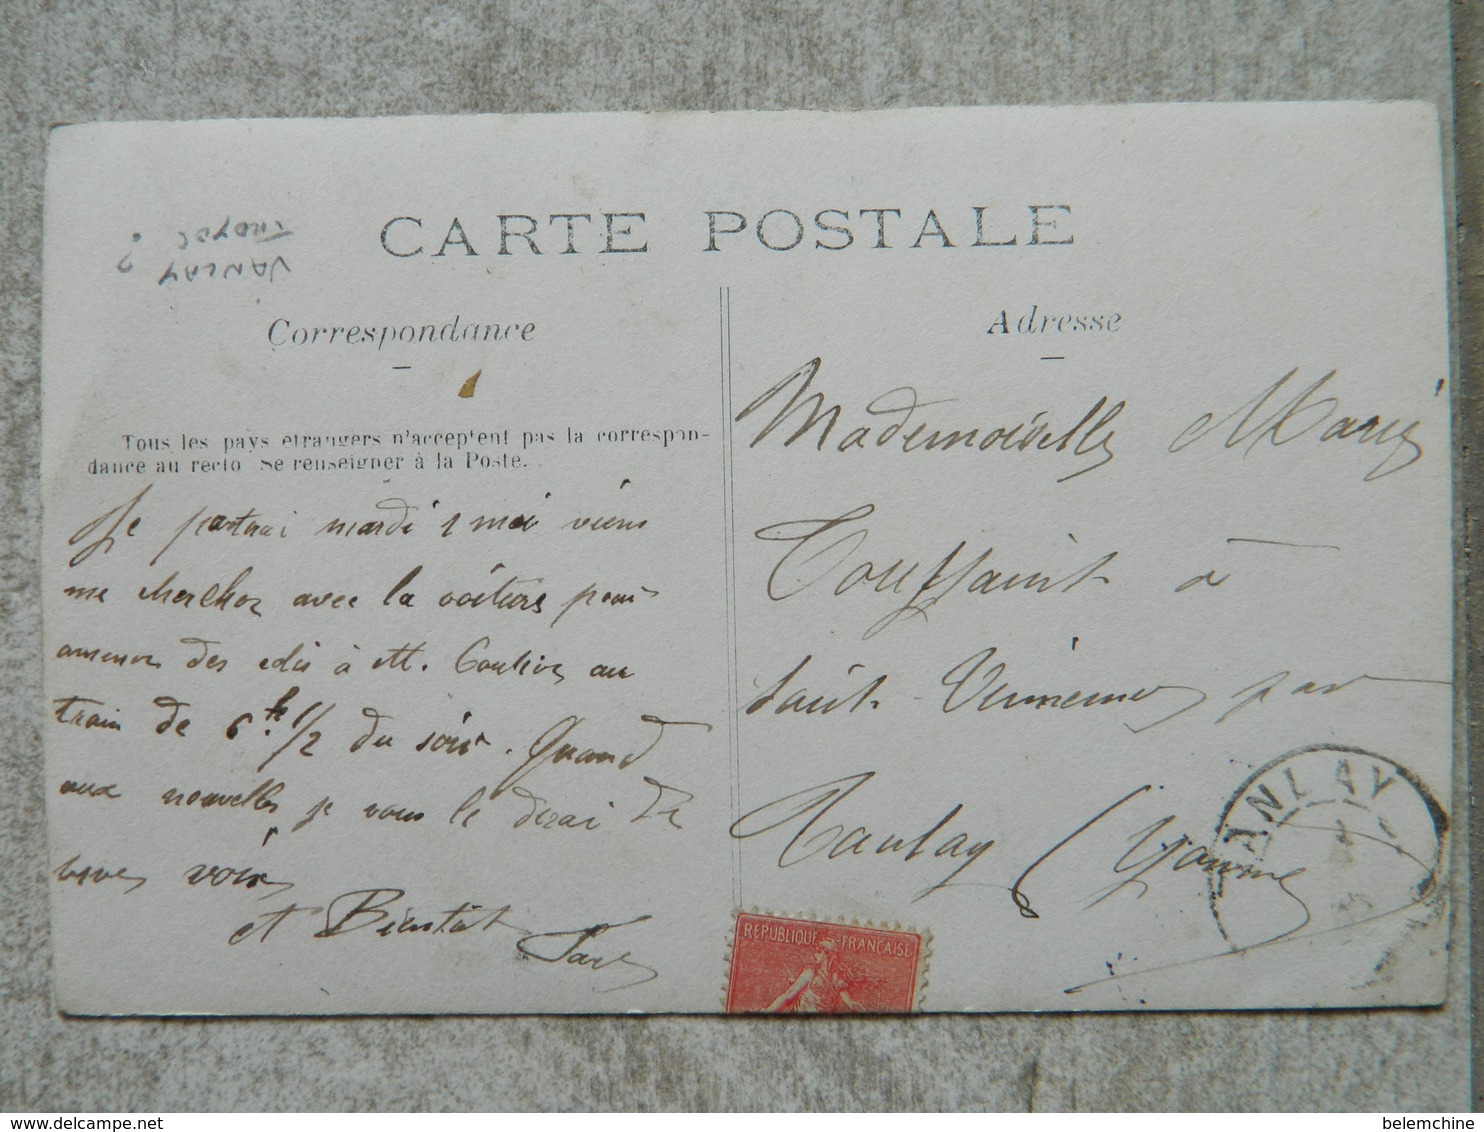 VANLAY
?
CARTE POSTALE
Correspondance
Adresse
Tous les pays étrangers n'acceptent pas la correspon-
dance au recto Se renseigner à la Poste.
Je partirai mardi 1 mai viens
me chercher avec la voiture pour
amener des à M. au
train de 6h. 1/2 du soir. Quand
aux nouvelles je vous le dirai de
vive voix
et Bientôt
Mademoiselle Marie
Toussaint à
Saint Vinnemer par
Tanlay (Yonne
ANLAY
REPUBLIQUE FRANÇAISE
delcampe.net
belemchine